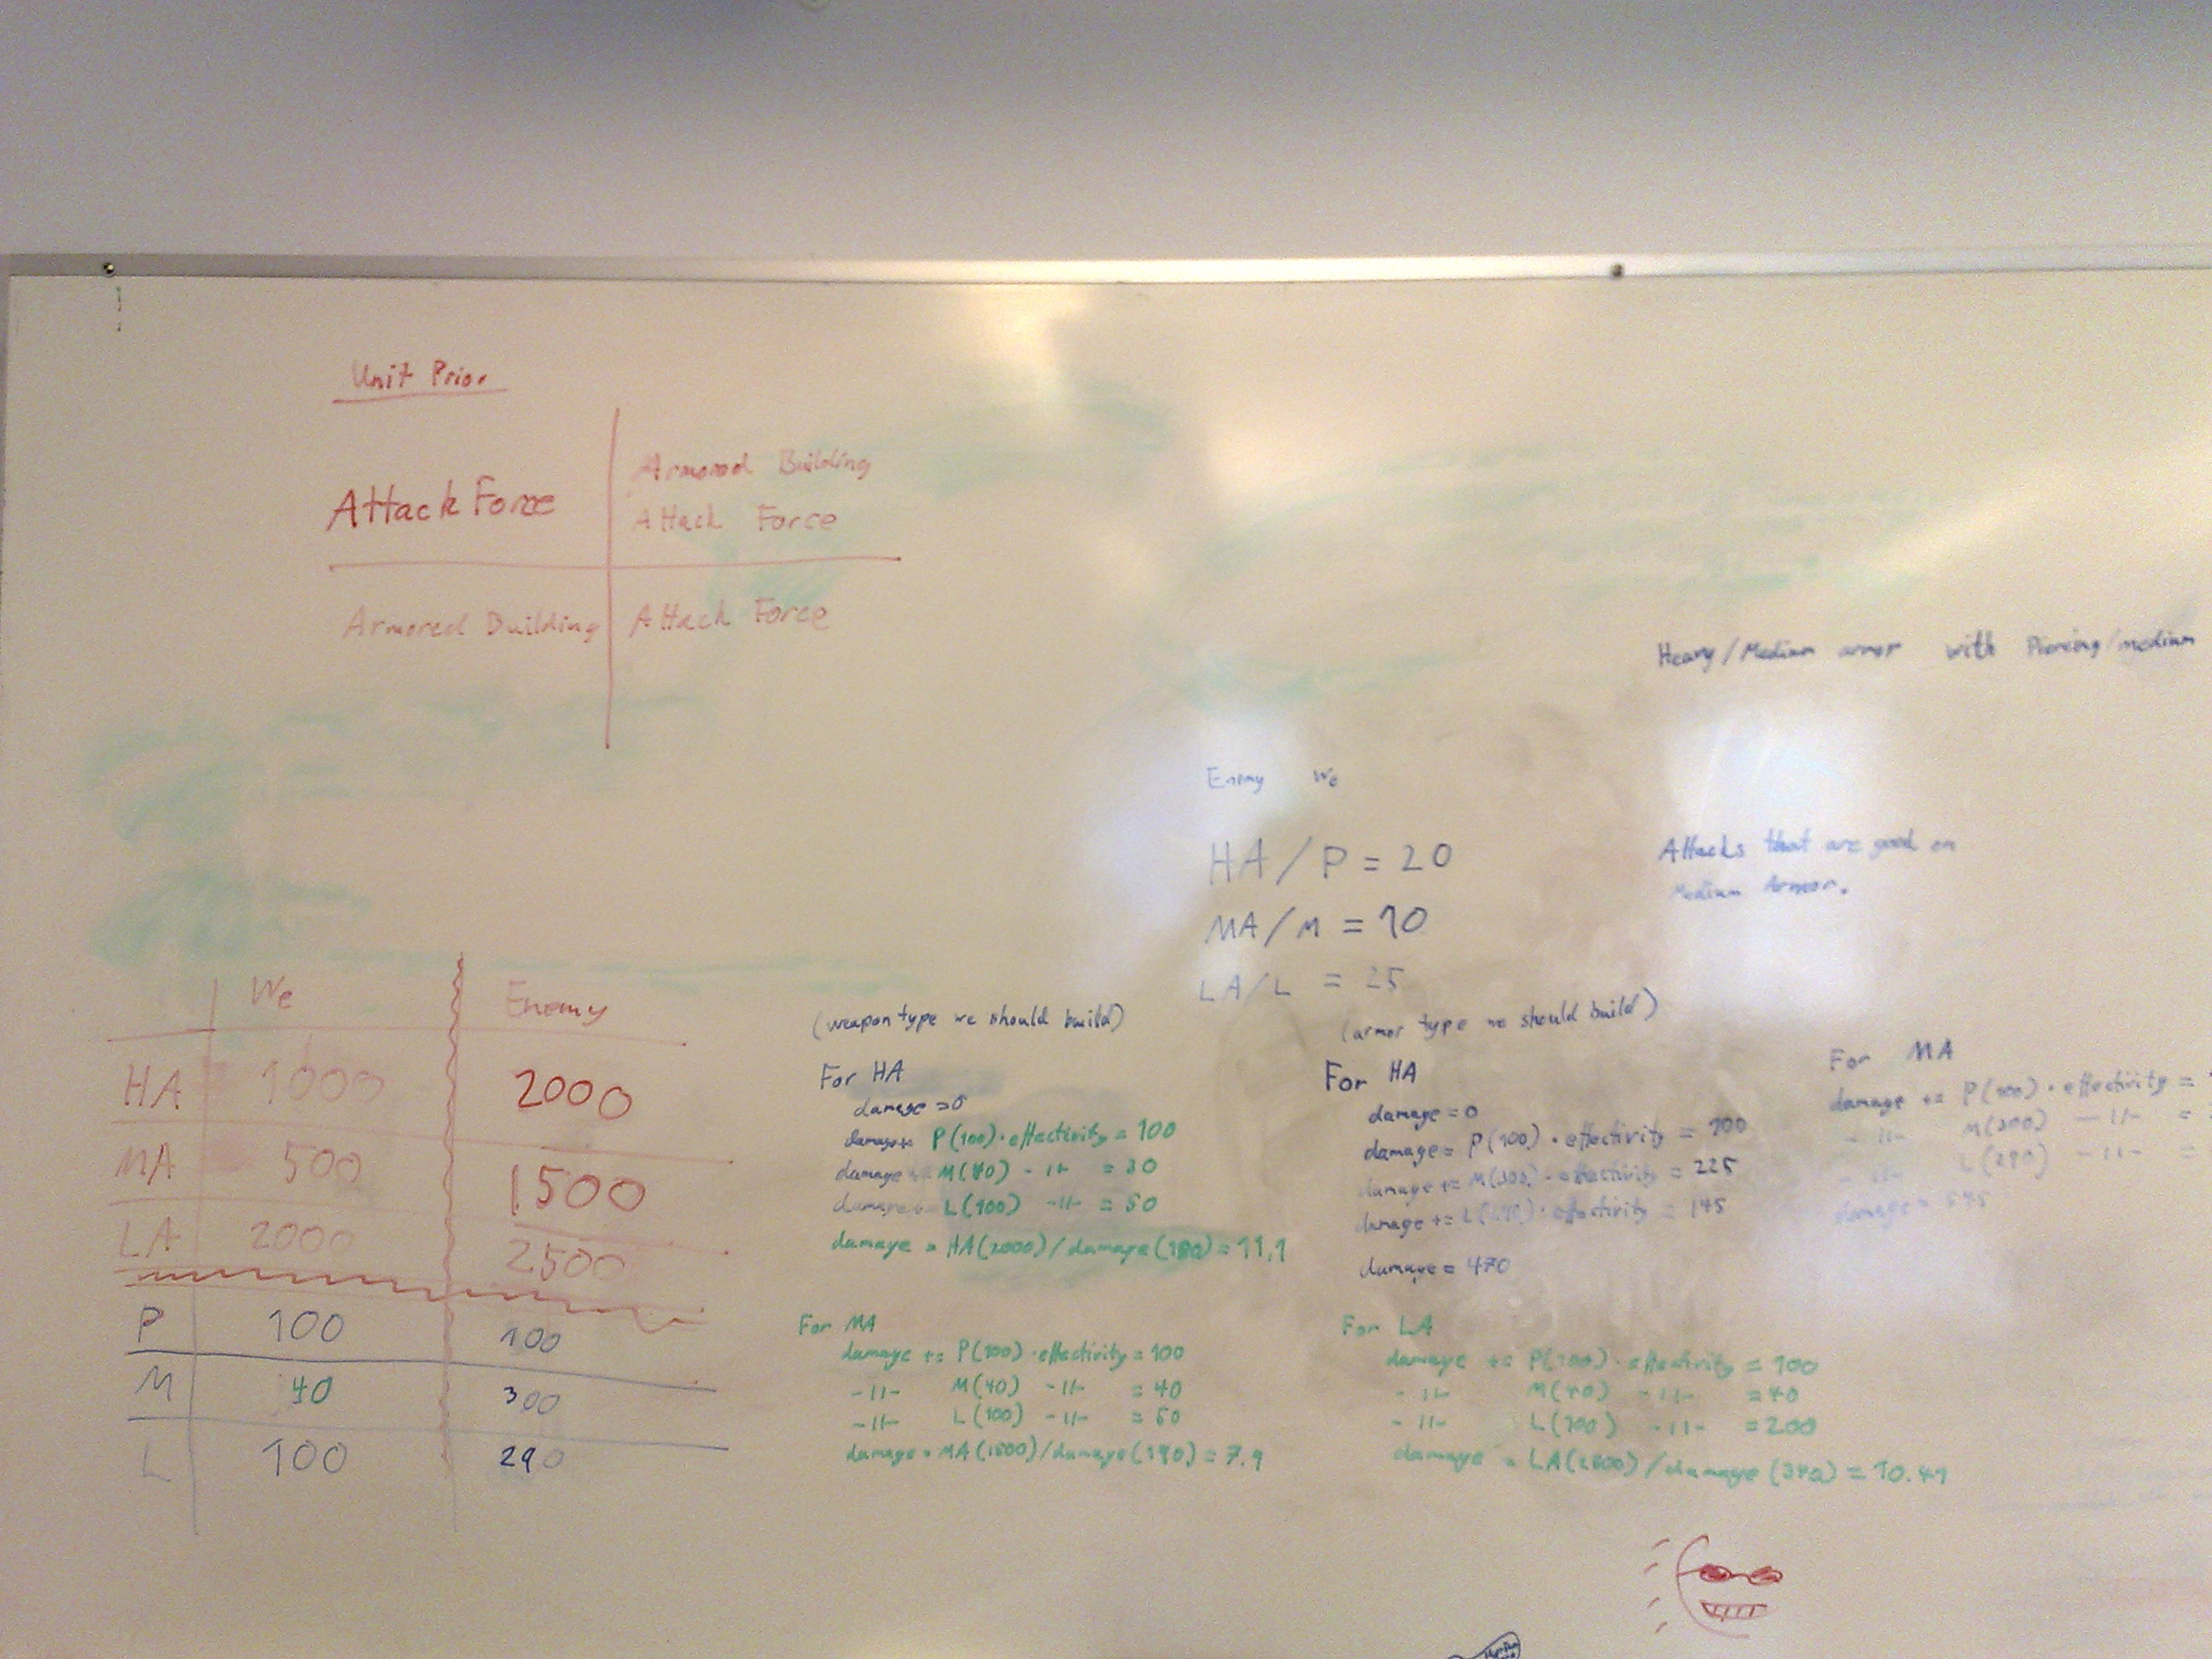 Unit Prior
Attack Force
Armored Building
Attack Force
Armored Building
Attack Force
Heavy/Medium armor with Piercing/medium
Enemy We
HA/P = 20
MA/M = 10
LA/L = 25
Attacks that are good on
Medium Armor.
We Enemy
HA 1000 2000
MA 500 1500
LA 2000 2500
P 100 100
M 40 300
L 100 290
(weapon type we should build)
For HA
damage = 0
damage += P(100) · effectivity = 100
damage += M(40) -11- = 30
damage += L(100) -11- = 50
damage = HA(2000)/damage(180) = 11,1
For MA
damage += P(100) · effectivity = 100
-11- M(40) -11- = 40
-11- L(100) -11- = 50
damage = MA(1500)/damage(190) = 7.9
(armor type we should build)
For HA
damage = 0
damage = P(100) · effectivity = 100
damage += M(300) · effectivity = 225
damage += L(290) · effectivity = 145
damage = 470
For LA
damage += P(100) · effectivity = 100
-11- M(40) -11- = 40
-11- L(100) -11- = 200
damage = LA(2500)/damage(240) = 10.41
For MA
damage += P(100) · effectivity =
-11- M(300) -11- =
-11- L(290) -11- =
damage =